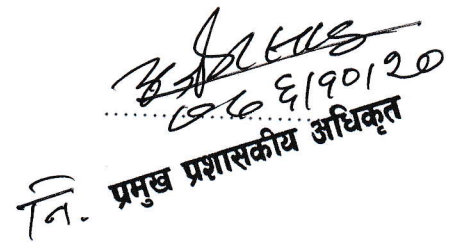 ०७६/१०/२०
नि. प्रमुख प्रशासकीय अधिकृत